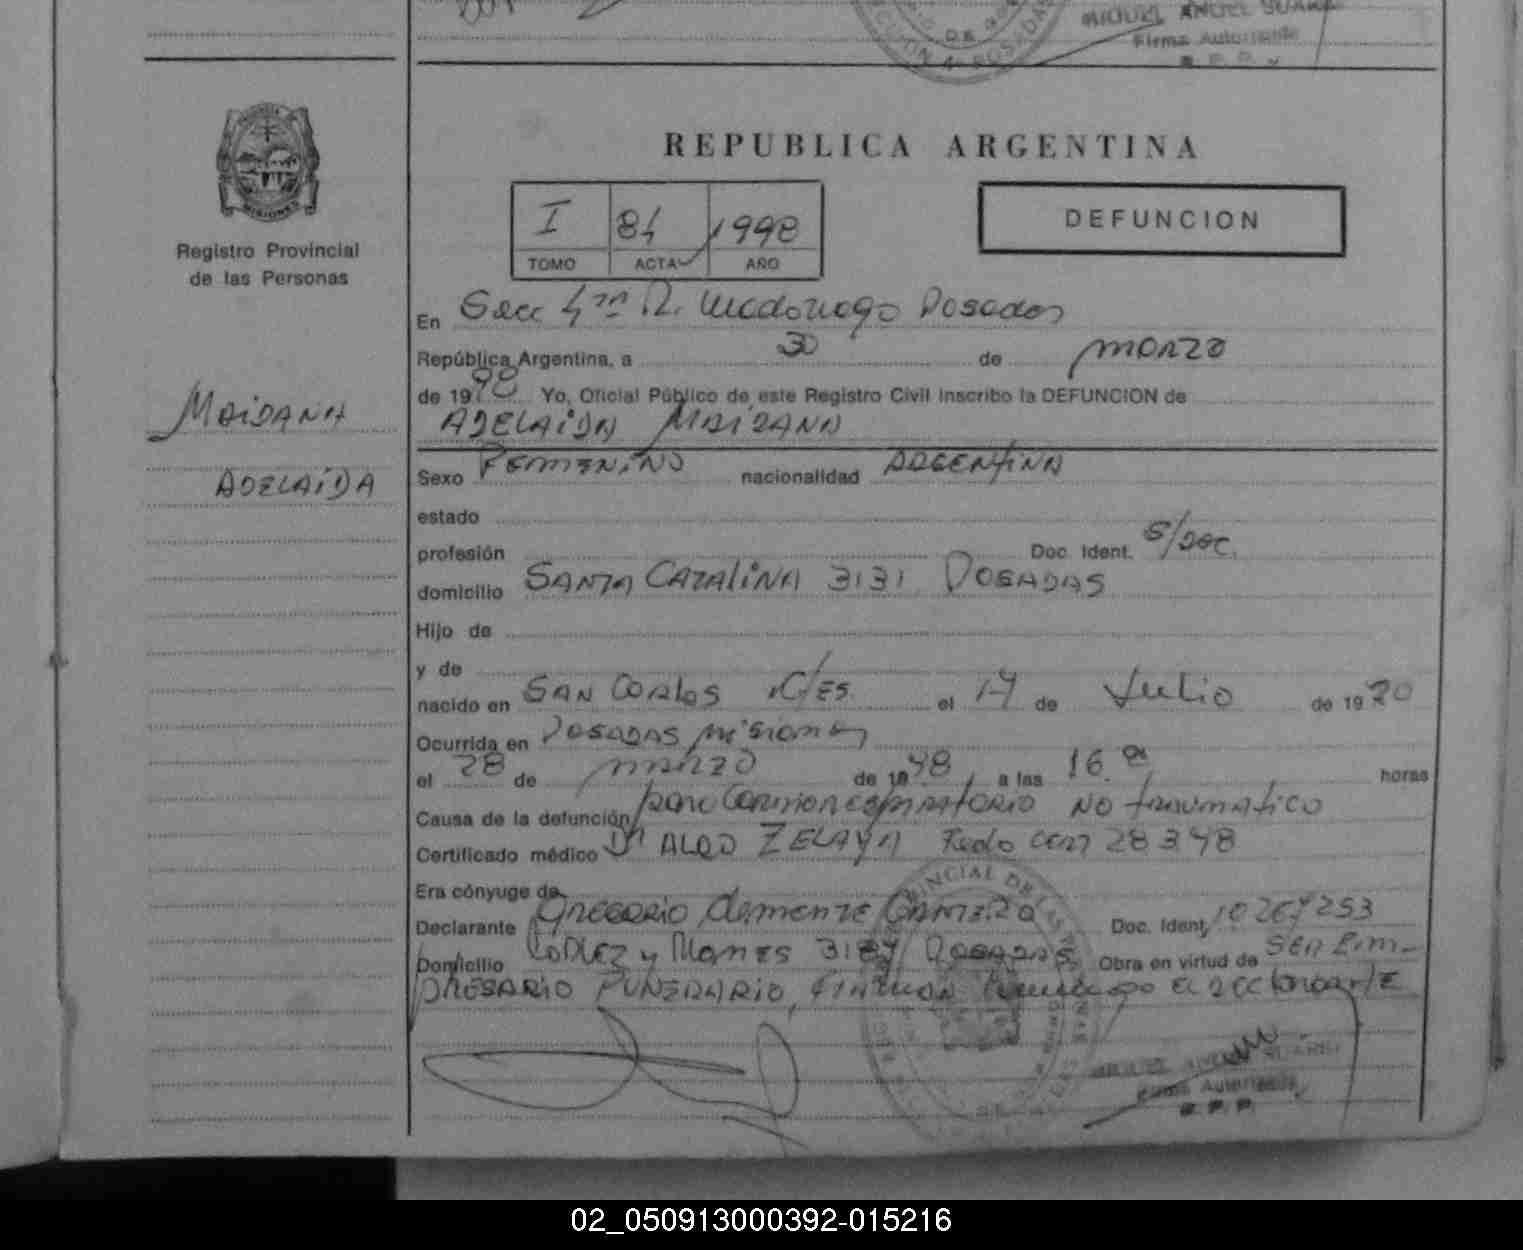 MIGUEL ANGEL SUAREZ
Firma Autorizante
R. P. P.
REPUBLICA ARGENTINA
MISIONES
Registro Provincial
de las Personas
I 84 1998
TOMO ACTA AÑO
DEFUNCION
En Secc 4ta R. Posadas
República Argentina, a 30 de marzo
de 1998 Yo, Oficial Público de este Registro Civil Inscribo la DEFUNCION de
MAIDANA
ADELAIDA MAIDANA
ADELAIDA
Sexo FEMENINO nacionalidad ARGENTINA
estado
profesión Doc. Ident. S/DOC.
domicilio SANTA CATALINA 3131 POSADAS
Hijo de
y de
nacido en SAN CARLOS C/ES. el 14 de Julio de 1920
Ocurrida en POSADAS MISIONES
el 28 de MARZO de 1998, a las 16 horas
Causa de la defunción paro CARDIORESPIRATORIO NO traumatico
Certificado médico Dr ALDO ZELAYA 28348
Era cónyuge de
Declarante GREGORIO Clemente Doc. Ident. 10267253
Domicilio y POSADAS Obra en virtud de SER Em-
PRESARIO FUNERARIO, el
MIGUEL ANGEL SUAREZ
Firma Autorizante
R. P. P.
02_050913000392-015216